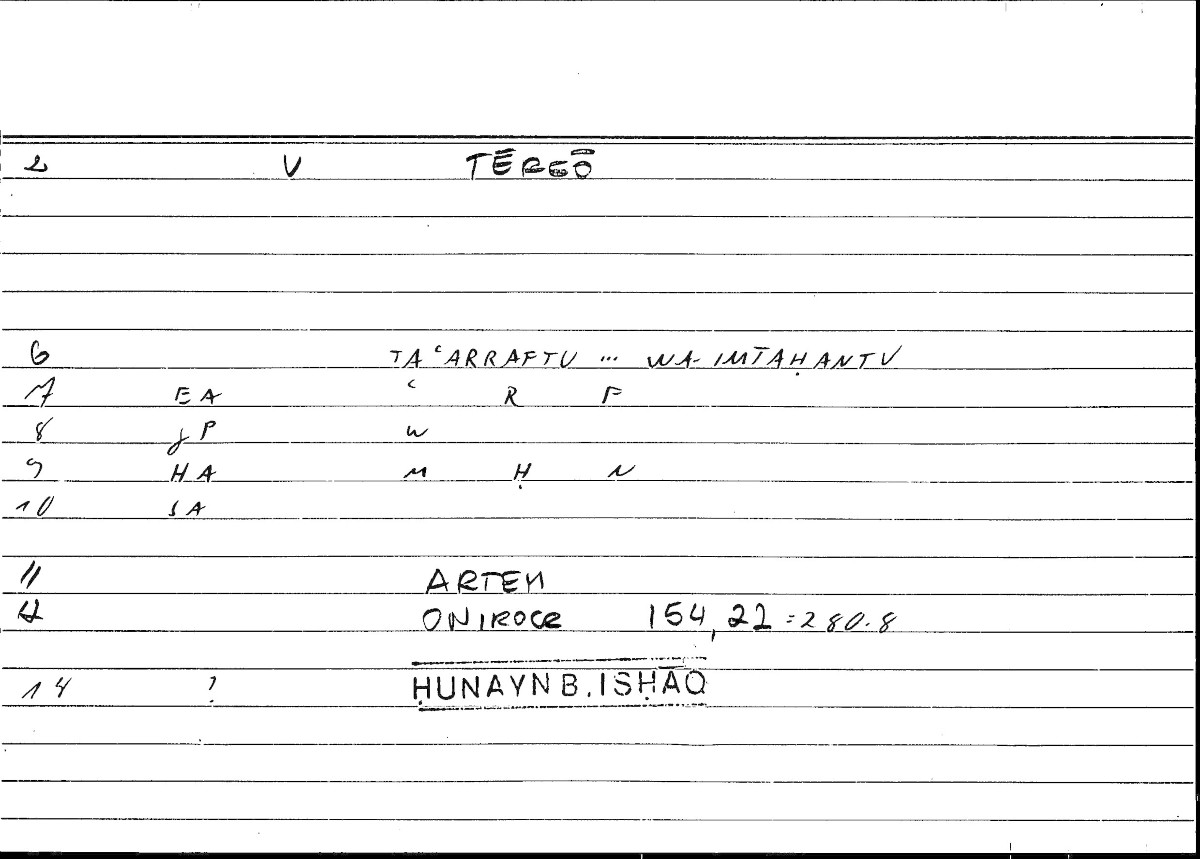 2 V TĒREŌ
6 TAʿARRAFTU ... WA-IMTAḤANTU
7 EA ʿ R F
8 JP W
9 HA M Ḥ N
10 SA
11 ARTEM
12 ONIROCR 154,22 = 280.8
14 ? ḤUNAYN B. ISḤĀQ